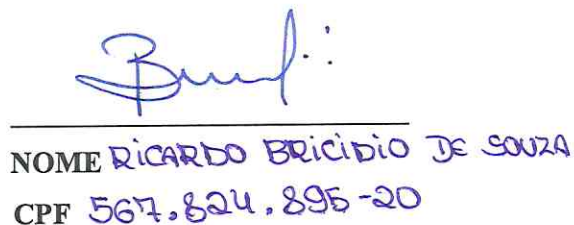 NOME RICARDO BRICIDIO DE SOUZA
CPF 567.824.895-20